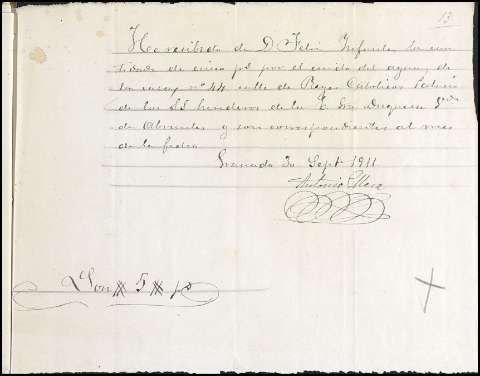 13
He recibido de D. Felix Infante la can
tidad de cinco ps por el cuido del agua, de
las casas nº 44 calle de Reyes Catolicos
de los SS herederos de la E. Sra Duquesa
de Abrantes y son correspondientes al mes
de la fecha
Granada 30 Sept 1911
Antonio
Son # 5 # ps